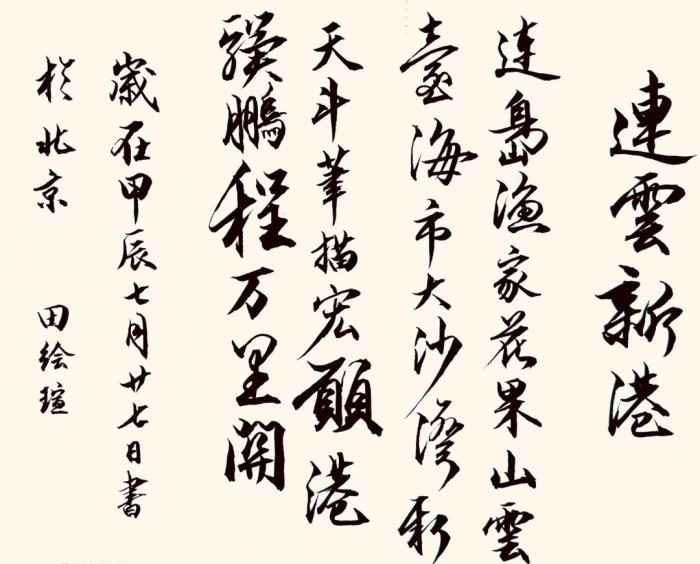 連雲新港
连島渔家花果山雲
臺海市大沙灣新
天斗筆描宏願港
骥鵬程万里開
歲在甲辰七月廿七日書
於北京 田绘瑄